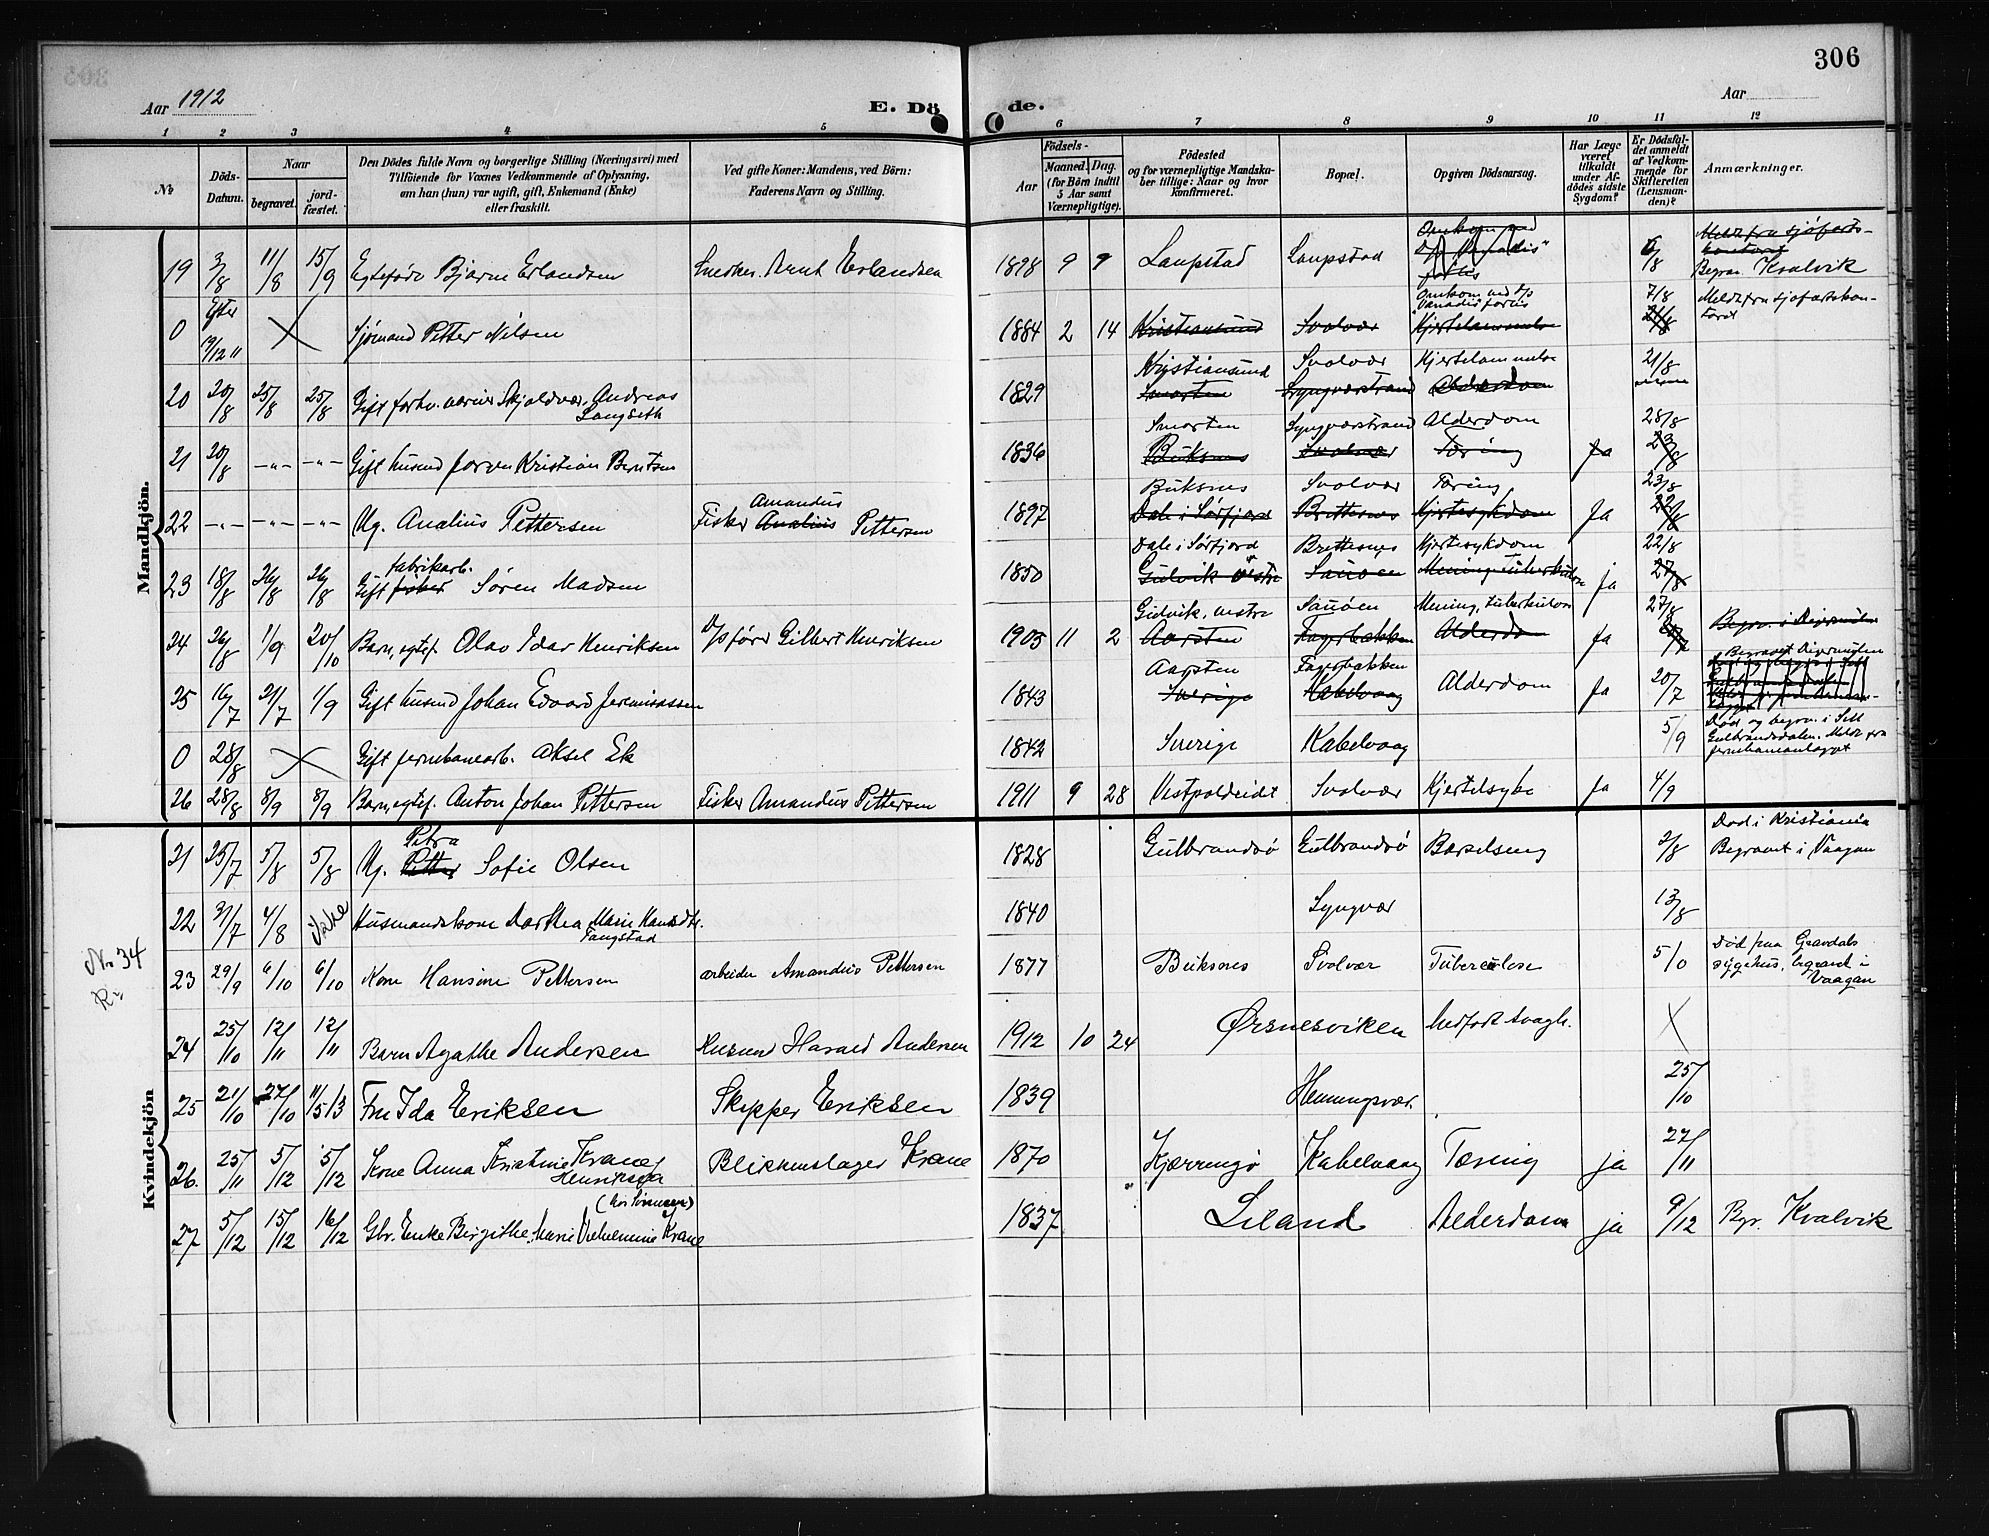 306
Aar 1912
E. Dö
de.
Aar
1 2 3 4 5 6 7 8 9 10 11 12
No
Döds-Datum.
Naar
begravet.
jord-fæstet.
Den Dödes fulde Navn og borgerlige Stilling (Næringsvei) med
Tilföiende for Voxnes Vedkommende af Oplysning,
om han (hun) var ugift, gift, Enkemand (Enke)
eller fraskilt.
Ved gifte Koner: Mandens, ved Börn:
Faderens Navn og Stilling.
Födsels-
Aar
Maaned. Dag.
(for Börn indtil
5 Aar samt
Værnepligtige).
Födested
og for værnepligtige Mandska-
ber tillige: Naar og hvor
konfirmeret.
Bopæl.
Opgiven Dödsaarsag.
Har Læge
været
tilkaldt
under Af-
dödes sidste
Sygdom?
Er Dödsfal-
det anmeldt
af Vedkom-
mende for
Skifteretten
(Lensman-
den)?
Anmærkninger.
Mandkjön.
19 3/8 11/8 15/9 Egtefødt Bjarne Erlandsen Snedker. Arnt Erlandsen 1898 9 9 Laupstad Laupstad Omkom med D/S "Vanadis" forlis 6/8 Meldt fra sjøfartskontoret Begrav. Kvalvik
0 Efter 19/12 11 Sjømand Petter Nilsen 1884 2 14 Kristiansund Svolvær Hjertelammelse Omkom ved D/S Vanadis forlis 7/8 21/8 Meldt fra sjøfartskontoret
20 20/8 25/8 25/8 Gift forhv. Andreas Langseth 1829 Kristiansund Svolvær Hjertelammelse 21/8
Smorten Lyngværstrand Alderdom
21 20/8 -"- -"- Gift husmd Jørgen Kristian Berntsen 1836 Smorten Lyngværstrand Alderdom 28/8
Buksnes Svolvær Tæring Ja 23/8
22 -"- -"- -"- Ug. Analius Pettersen Fisker Amandus Analius Pettersen 1897 Buksnes Svolvær Tæring 23/8
Dale i Sørfjord Brettesnes Hjertesykdom Ja 22/8
23 18/8 26/8 26/8 Gift fabrikarb. fisker Søren Madsen 1850 Dale i Sørfjord Brettesnes Hjertesykdom 22/8
Sauøen ja 27/8
24 26/8 1/9 20/10 Barn, egtef. Olav Idar Henriksen D/S fører Gilbert Henriksen 1905 11 2 Gidvik, vestre Sauøen Mening, tuberkulose 27/8
Aarsten Fagerbakken Alderdom Ja
25 16/7 21/7 1/9 Gift husmd Johan Edvard Jeremiassen 1843 Aarsten Fagerbakken Alderdom Ja 20/7
Sverige Kabelvaag
0 28/8 Gift jernbanearb. Aksel Ek 1842 Sverige Kabelvaag 5/9 Død og begrav. i Sell Gulbrandsdalen. Meldt fra jernbaneanlegget
26 28/8 8/9 8/9 Barn, egtef. Anton Johan Pettersen Fisker Amandus Pettersen 1911 9 28 Vestpoldeidet Svolvær Kjertelsyke Ja 4/9
Kvindekjön
21 25/7 5/8 5/8 Ug. Petra Petter Sofie Olsen 1828 Gulbrandsø Gulbrandsø Barselseng 2/8 Død i Kristiania Begravet i Vaagan
22 31/7 4/8 ikke Husmandskone Dorthea Marie Hansdtr. Fangstad 1840 Lyngvær 13/8
Nr 34
23 29/9 6/10 6/10 Kone Hansine Pettersen arbeider Amandus Pettersen 1877 Buksnes Svolvær Tuberculose 5/10 Død paa Gravdals sygehus, begravet i Vaagan
24 25/10 12/11 12/11 Barn Agathe Andersen Husmd Harald Andersen 1912 10 24 Ørsnesviken Medfødt svagh.
25 21/10 27/10 11/5 13 Fru Ida Eriksen Skipper Eriksen 1839 Henningsvær. 25/10
26. 25/11 5/12 5/12 Kone Anna Kristine Krane Henriksen Blikkenslager Krane 1870 Kjærringø Kabelvaag Tæring ja 27/11
27 5/12 15/12 16/12 Gbr. Enke Birgithe Marie Vilhelmine Krane 1837 Liland Alderdom ja 9/12 Bgr. Kvalvik